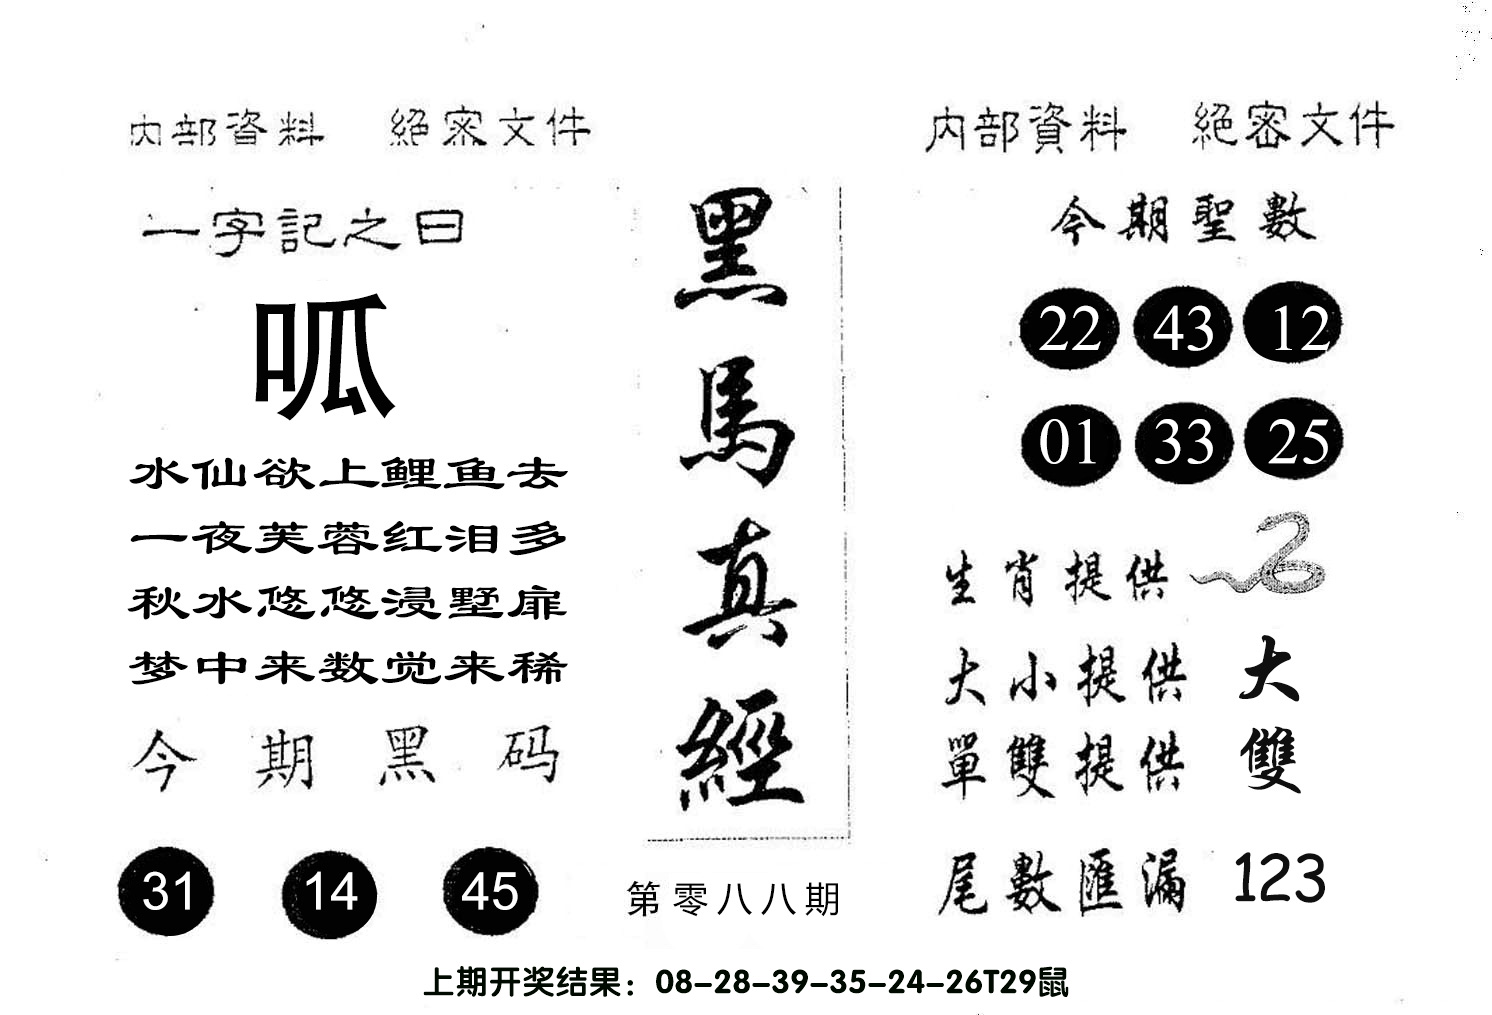 内部資料 絕密文件
一字記之曰
呱
水仙欲上鲤鱼去
一夜芙蓉红泪多
秋水悠悠浸墅扉
梦中来数觉来稀
今期黑码
31 14 45
黑馬真經
第零八八期
内部資料 絕密文件
今期聖數
22 43 12
01 33 25
生肖提供
大小提供 大
單雙提供 雙
尾數匯漏 123
上期开奖结果：08-28-39-35-24-26T29鼠